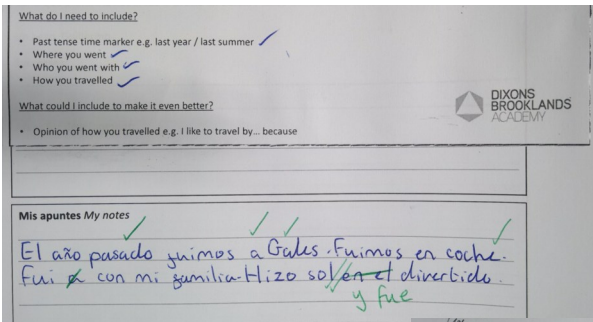 What do I need to include?
• Past tense time marker e.g. last year / last summer
• Where you went
• Who you went with
• How you travelled
What could I include to make it even better?
• Opinion of how you travelled e.g. I like to travel by... because
DIXONS
BROOKLANDS
ACADEMY
Mis apuntes My notes
El año pasado fuimos a Gales. Fuimos en coche.
Fui a con mi familia. Hizo sol en el divertido.
y fue